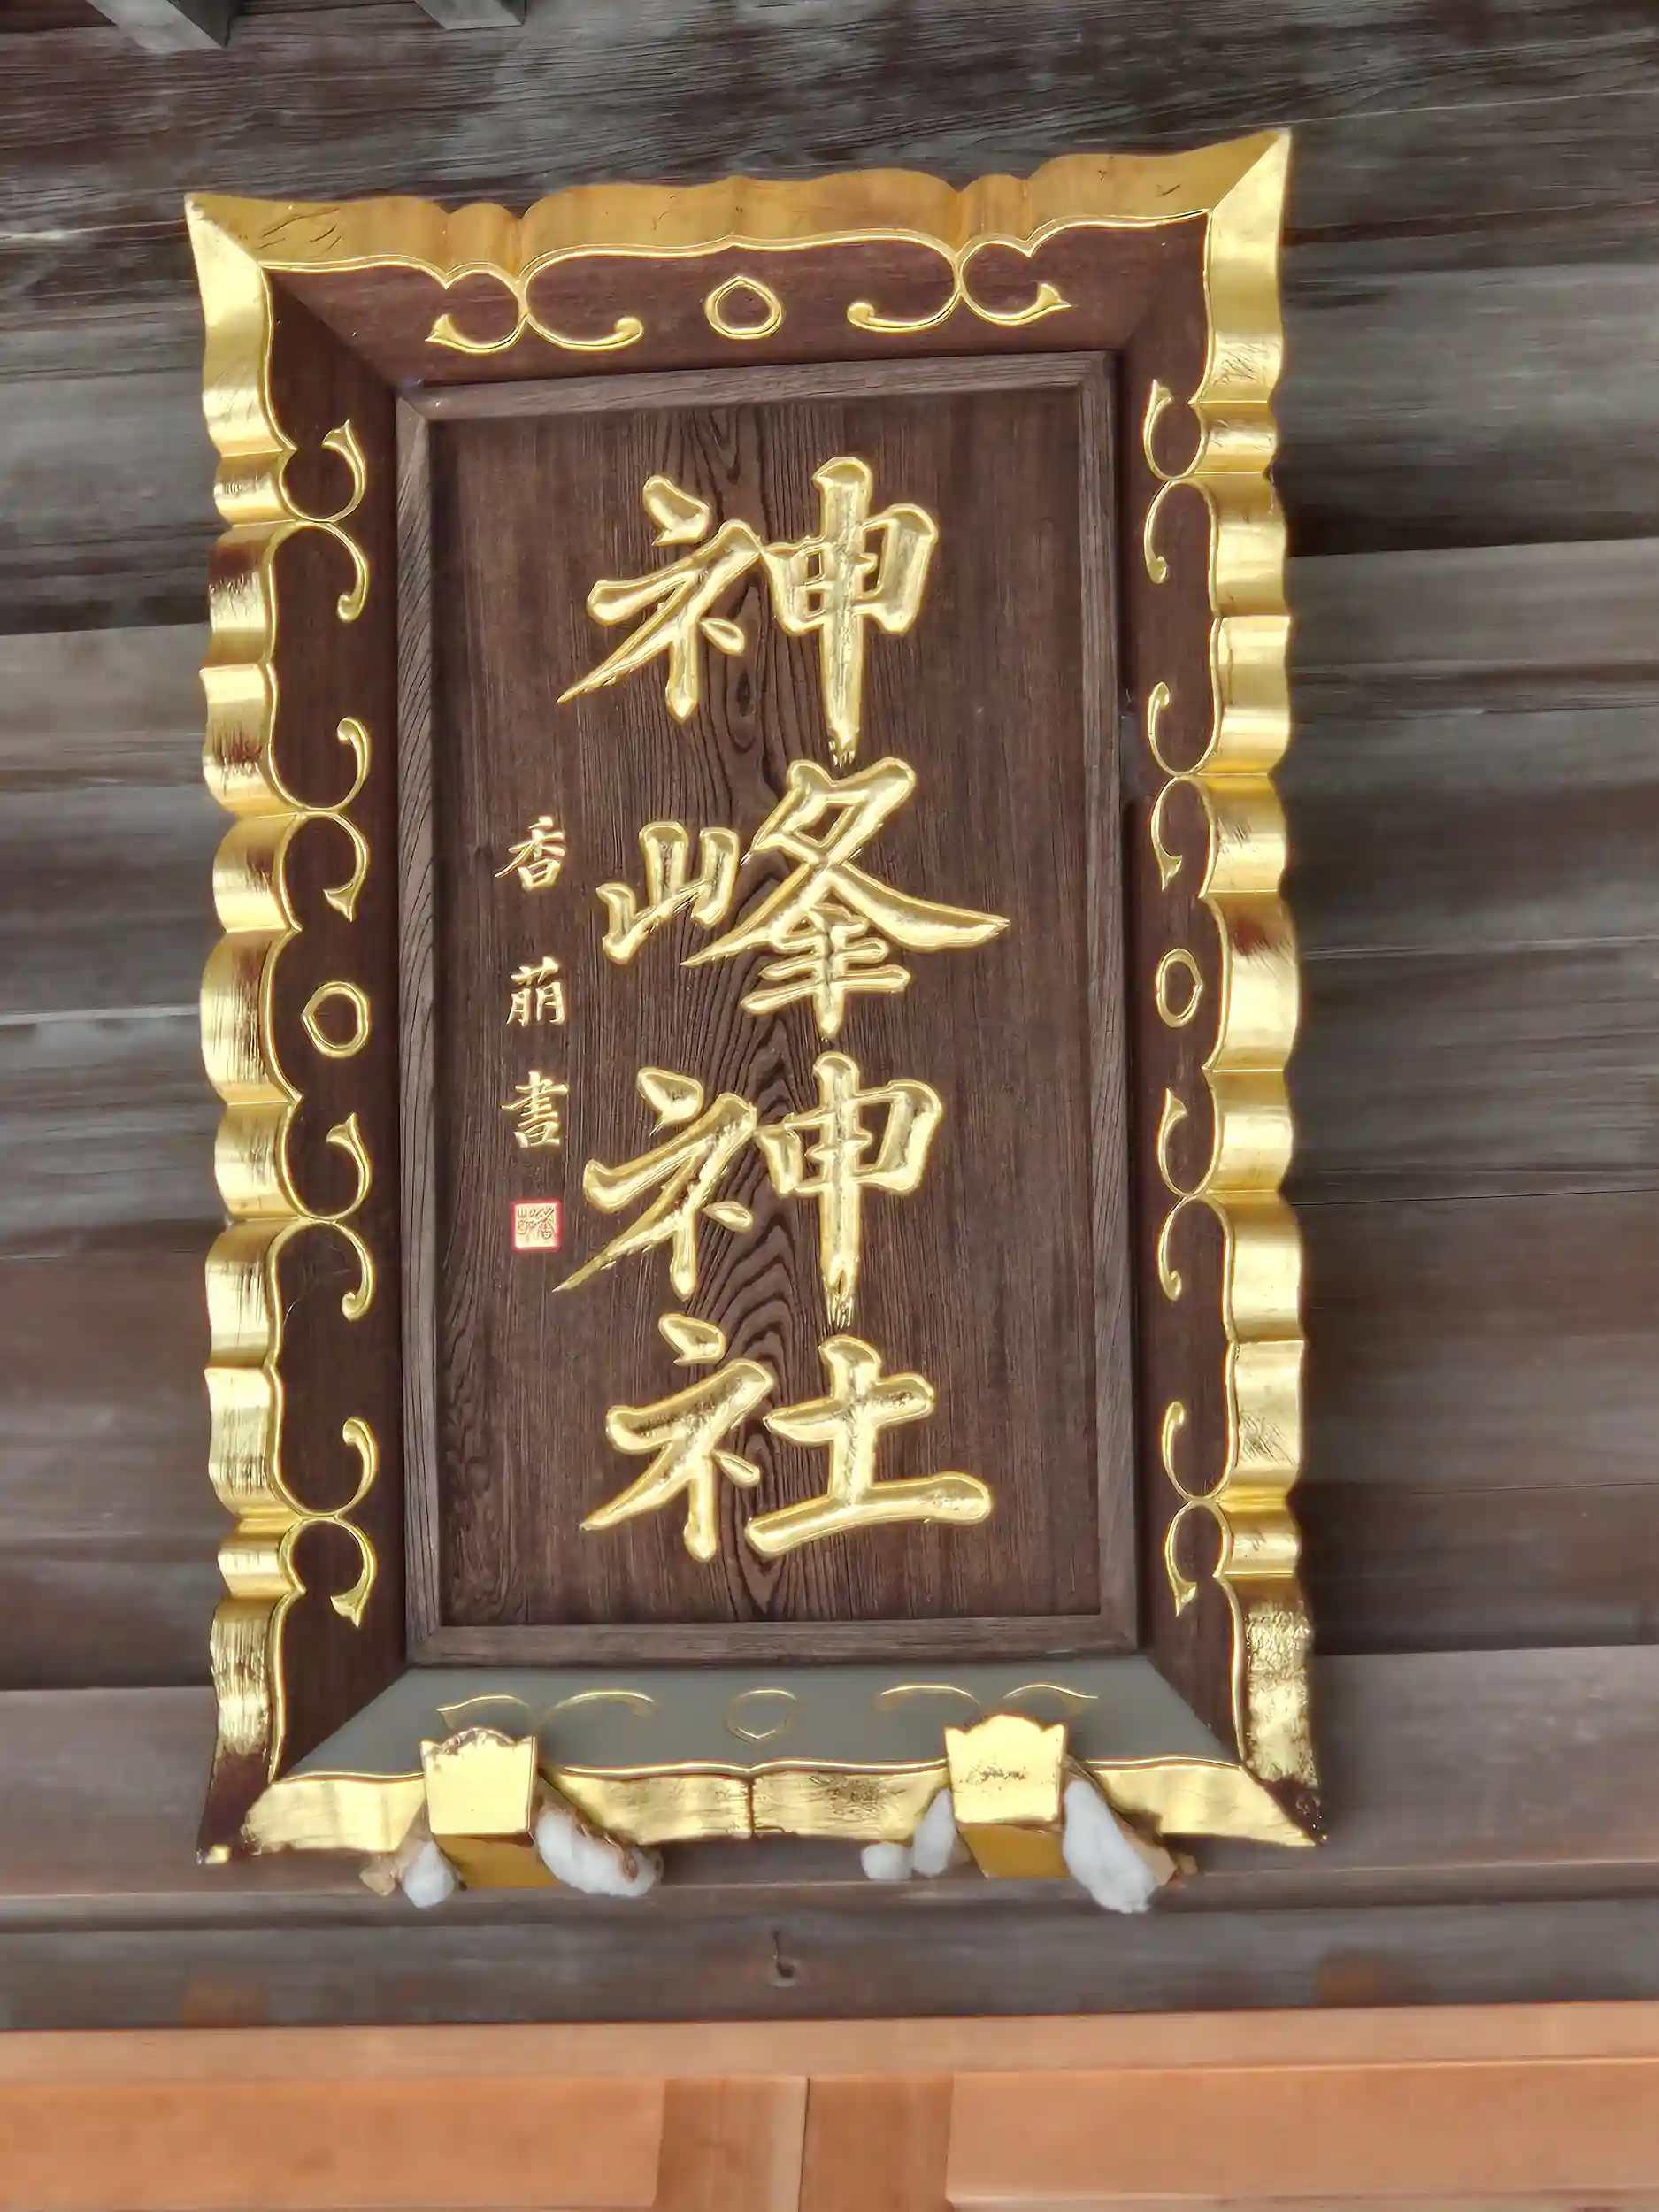 神峰神社
香萠書